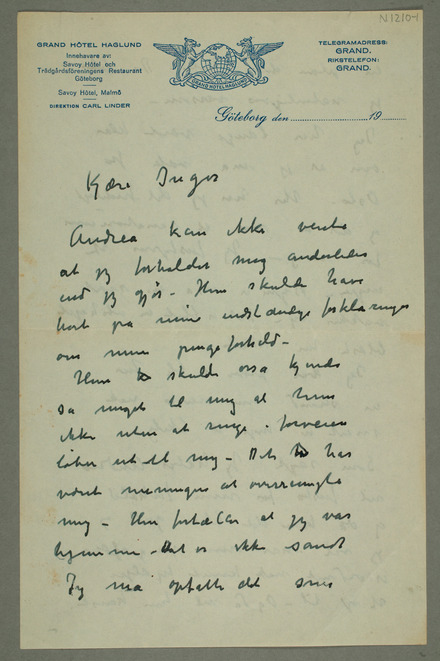 N1210-1
GRAND HÔTEL HAGLUND
Innehavare av:
Savoy Hôtel och
Trädgårdsföreningens Restaurant
Göteborg
Savoy Hôtel, Malmö
DIREKTION CARL LINDER
GRAND HÔTEL HAGLUND
TELEGRAMADRESS:
GRAND.
RIKSTELEFON:
GRAND.
Göteborg den 19
Kjære Inger
Andrea kan ikke vente
at jeg forholder mig anderledes
end jeg gjør – Hun skulde have
hørt på mine indstændige forklaringer
om mine pengeforhold –
Hun skulde også kjende
så meget til mig at hun
ikke uten at ringe
løber ut til mig – Det har
været meningen at overrumple
mig – Hun fortæller at jeg var
hjemme – Det er ikke sandt
Jeg må opfatte det som